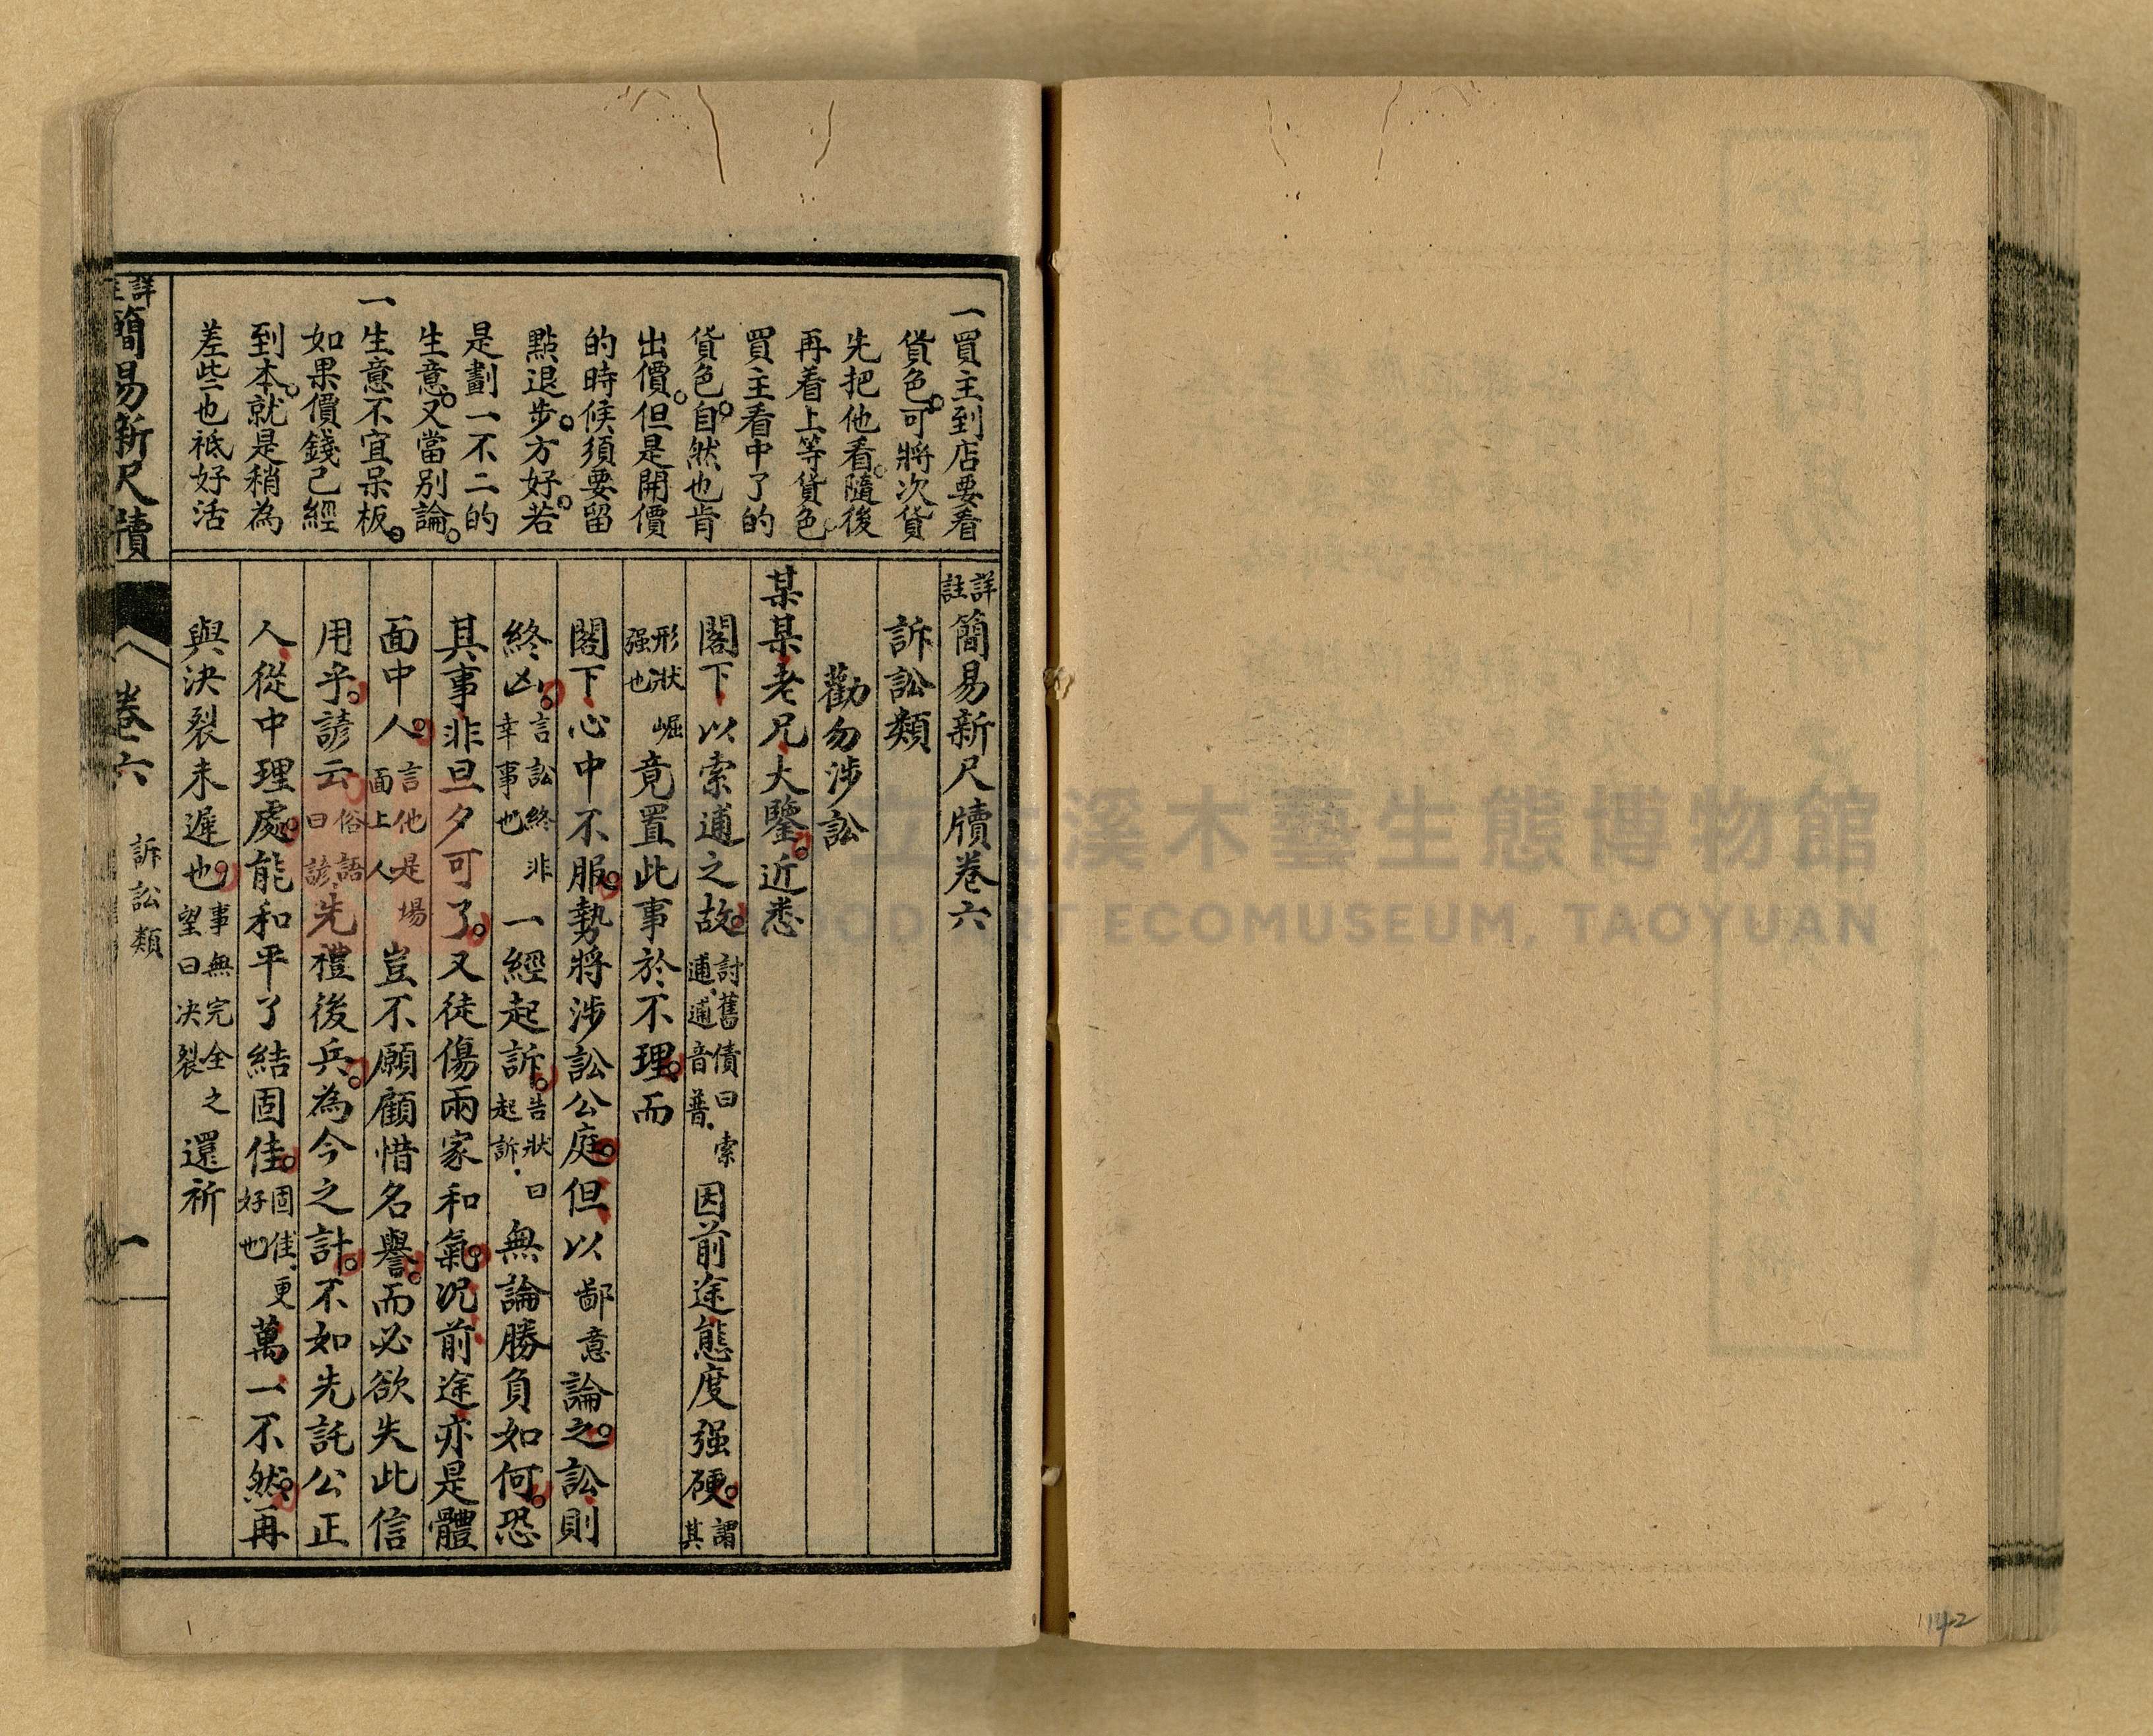 一買主到店要看
貨色。可將次貨
先把他看。隨後
再着上等貨色。
買主看中了的
貨色。自然也肯
出價。但是開價
的時候須要留
點退步。方好。若
是劃一不二的
生意。又當別論。
一生意不宜呆板。
如果價錢已經
到本。就是稍為
差些也祇好活
詳註簡易新尺牘卷六
訴訟類
勸勿涉訟
某某老兄大鑒。近悉
閣下以索逋之故。討舊債曰索逋。逋音普。因前途態度强硬。謂其
形狀崛强也竟置此事於不理。而
閣下心中不服。勢將涉訟公庭。但以鄙意論之。訟則
終凶。言訟終非幸事也一經起訴。告狀曰起訴。無論勝負如何。恐
其事非旦夕可了。又徒傷兩家和氣。况前途亦是體
面中人。言他是場面上人豈不願顧惜名譽。而必欲失此信
用乎。諺云。俗語曰諺先禮後兵。為今之計。不如先託公正
人從中理處。能和平了結固佳。固佳。更好也萬一不然。再
與決裂未遲也。事無完全之望曰决裂還祈
詳註簡易新尺牘
卷六
訴訟類
一
大溪木藝生態博物館
WOOD ART ECOMUSEUM, TAOYUAN
1142